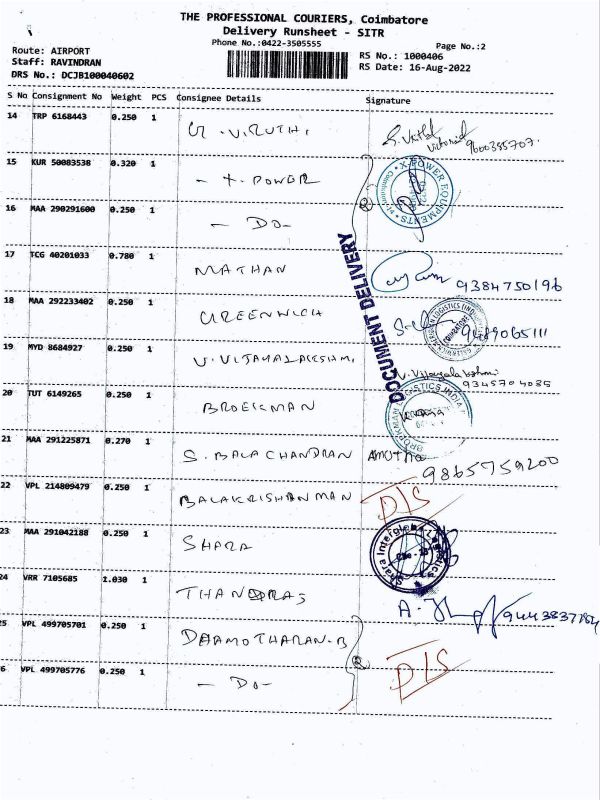 THE PROFESSIONAL COURIERS, Coimbatore
Delivery Runsheet - SITR
Phone No.:0422-3505555
Page No.:2
Route: AIRPORT
Staff: RAVINDRAN
DRS No.: DCJB100040602
RS No.: 1000406
RS Date: 16-Aug-2022
S No Consignment No Weight PCS Consignee Details Signature
14 TRP 6168443 0.250 1 G.VIRUTHI 9600355707
15 KUR 50083538 0.320 1 - X-POWER X-POWER EQUIPMENTS
16 MAA 290291600 0.250 1 - DO-
DOCUMENT DELIVERY
17 TCG 40201033 0.780 1 MATHAN 9384750196
18 MAA 292233402 0.250 1 GREENWICH 9489065111
19 MYD 8684927 0.250 1 V.VIJAYALAKSHMI V. Vijayalakshmi
9345704085
20 TUT 6149265 0.250 1 BROEKMAN BROEKMAN LOGISTICS INDIA
21 MAA 291225871 0.270 1 S. BALA CHANDRAN AMUTHA
9865759200
22 VPL 214809479 0.250 1 BALAKRISHANMAN D/S
23 MAA 291042188 0.250 1 SHARA Shara Interglobe Logistics
24 VRR 7105685 1.030 1 9443837784
25 VPL 499705701 0.250 1 DHAMOTHARAN.B
26 VPL 499705776 0.250 1 - DO- D/S